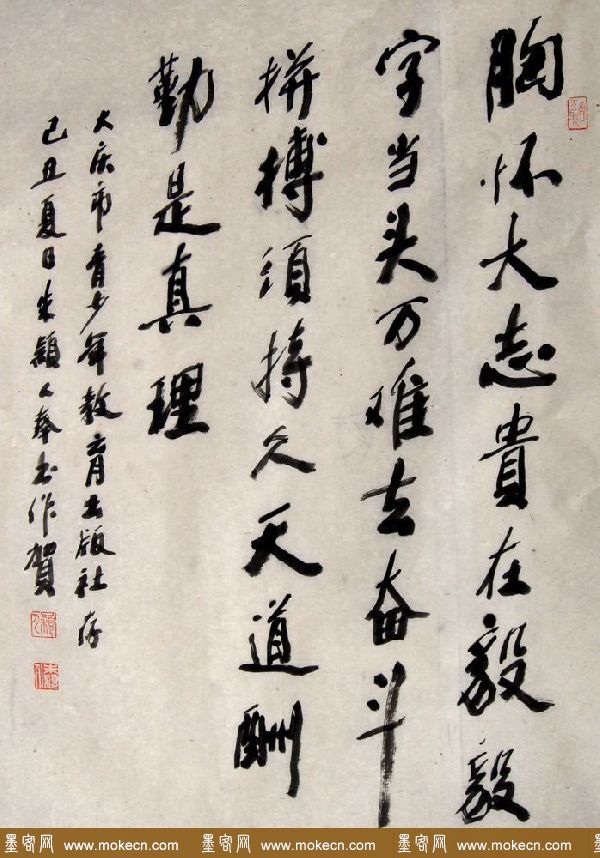 胸怀大志貴在毅毅
字当头万难去奋斗
拼搏须持久天道酬
勤是真理
大庆市青少年教育出版社存
己丑夏日朱颖人奉书作賀
墨客网 www.mokecn.com 墨客网 www.mokecn.com 墨客网 www.mokecn.com